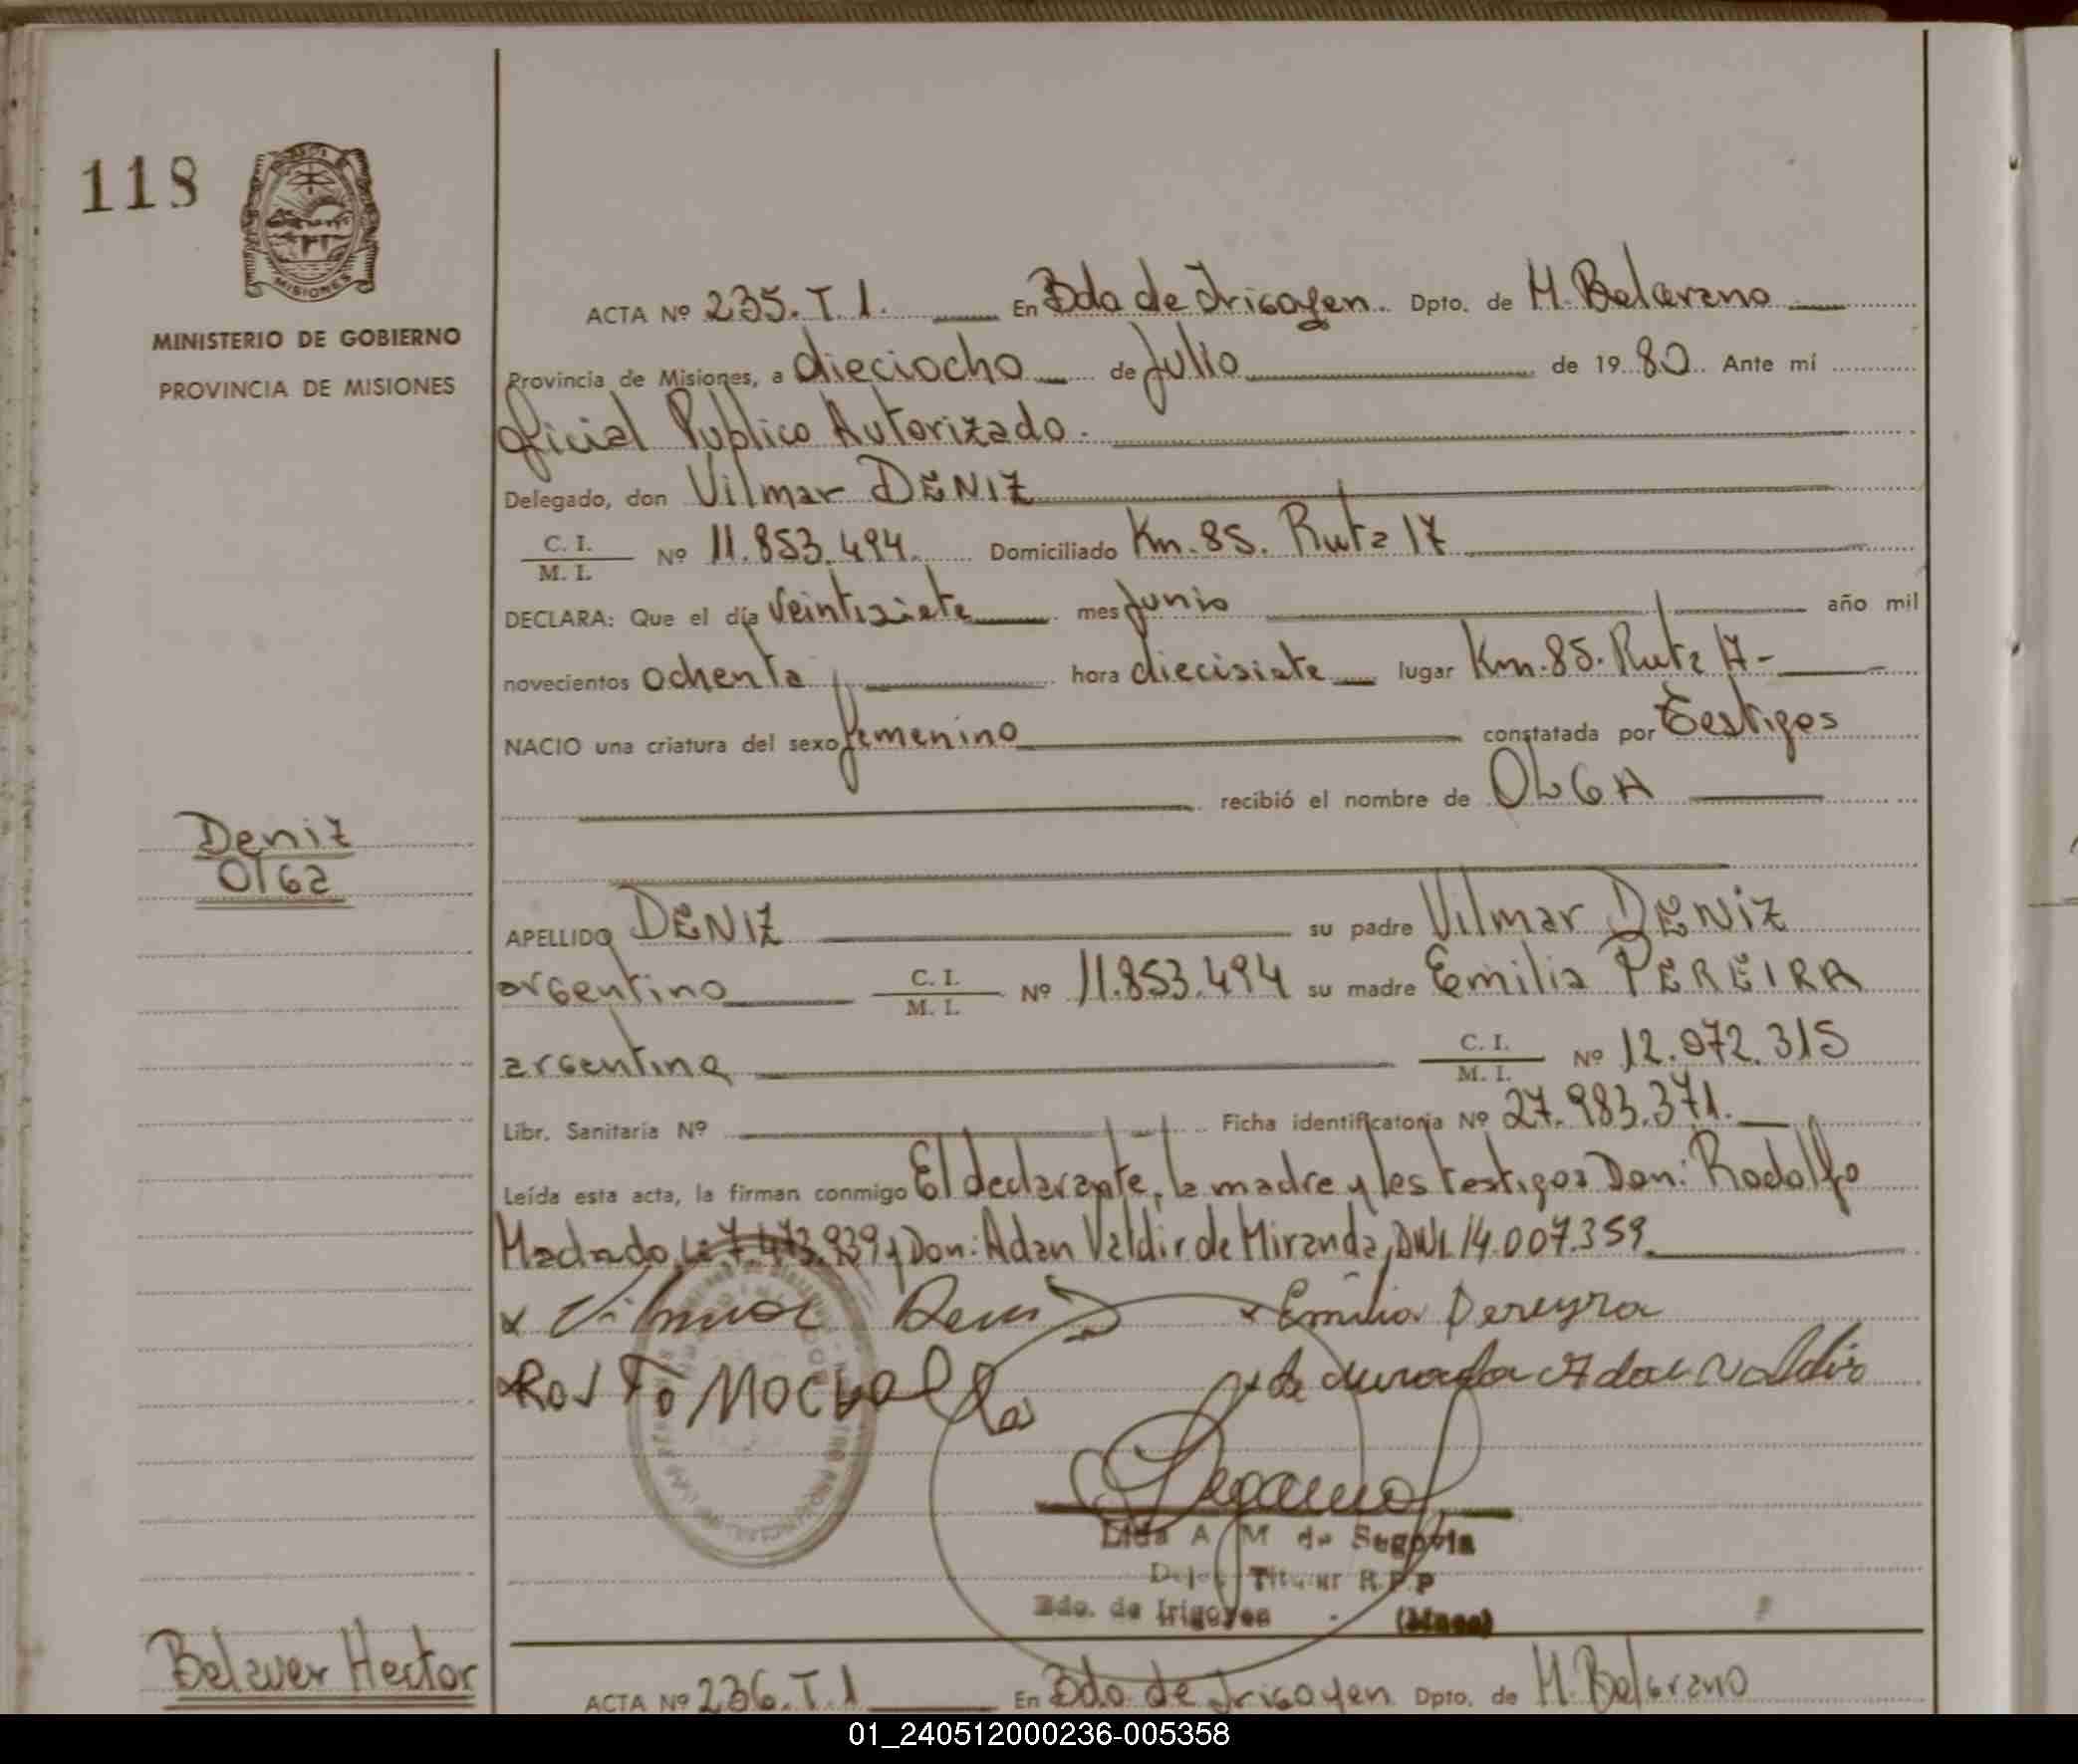 118
MISIONES
MINISTERIO DE GOBIERNO
PROVINCIA DE MISIONES
ACTA Nº 235. T. 1. En Bdo de Irigoyen. Dpto. de M. Belgrano
Provincia de Misiones, a dieciocho de Julio de 1980. Ante mí
Oficial Publico Autorizado.
Delegado, don Vilmar DENIZ
C. I. / M. I. Nº 11.853.494. Domiciliado Km. 85. Ruta 17
DECLARA: Que el día Veintisiete mes Junio año mil
novecientos ochenta hora diecisiete lugar Km. 85. Ruta 17-
NACIO una criatura del sexo femenino constatada por Testigos
recibió el nombre de OLGA
Deniz
Olga
APELLIDO DENIZ su padre Vilmar DENIZ
argentino C. I. / M. I. Nº 11.853.494 su madre Emilia PEREIRA
argentina C. I. / M. I. Nº 12.072.315
Libr. Sanitaria Nº Ficha identificatoria Nº 27.983.371.
Leída esta acta, la firman conmigo El declarante, la madre y los testigos Don: Rodolfo
Machado, LE 7.473.939 y Don: Adan Valdir de Miranda, DNI. 14.007.359
x Vilmar Deniz x Emilia Pereyra
x de Miranda Adan Valdir
Lida A M de Segovia
Deleg Titular R.P.P
Bdo. de Irigoyen - (Mnes)
Belaver Hector
ACTA Nº 236. T. 1 En Bdo. de Irigoyen Dpto. de M. Belgrano
01_240512000236-005358